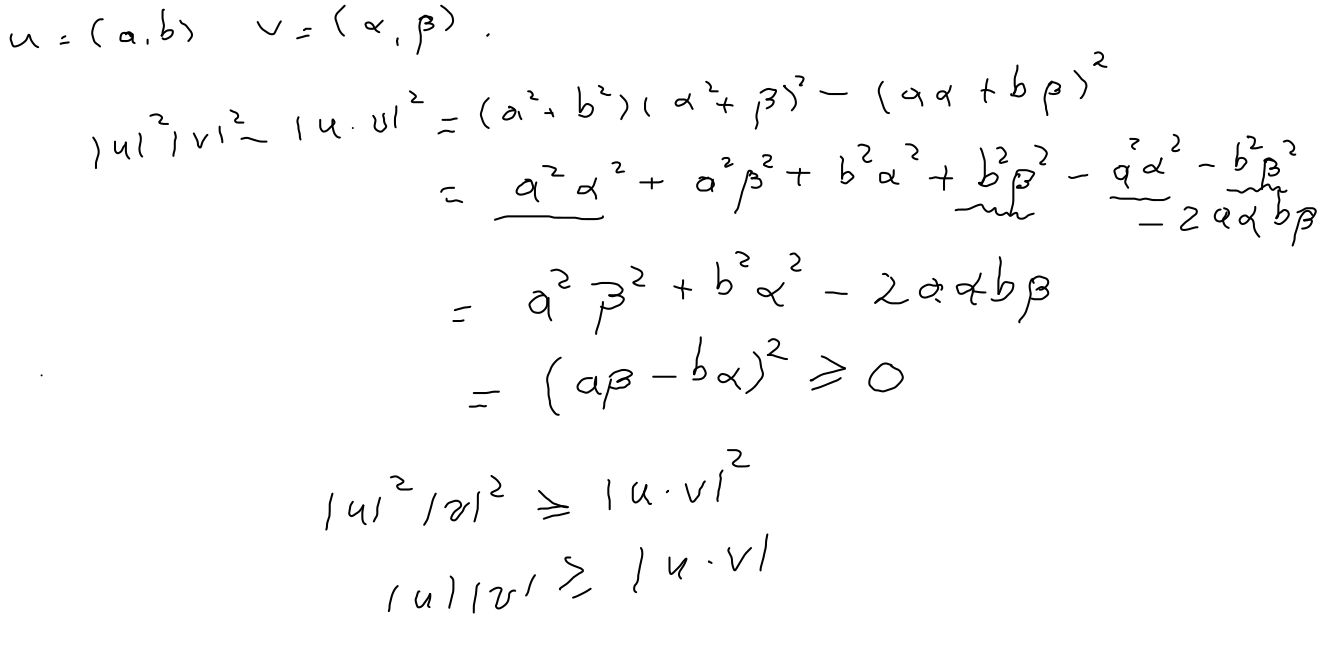 u = (a, b) v = (α, β).
|u|²|v|² - |u · v|² = (a² + b²)(α² + β)² - (aα + bβ)²
= a²α² + a²β² + b²α² + b²β² - a²α² - b²β²
- 2aαbβ
= a²β² + b²α² - 2aαbβ
= (aβ - bα)² ≥ 0
|u|²|v|² ≥ |u · v|²
|u||v| ≥ |u · v|